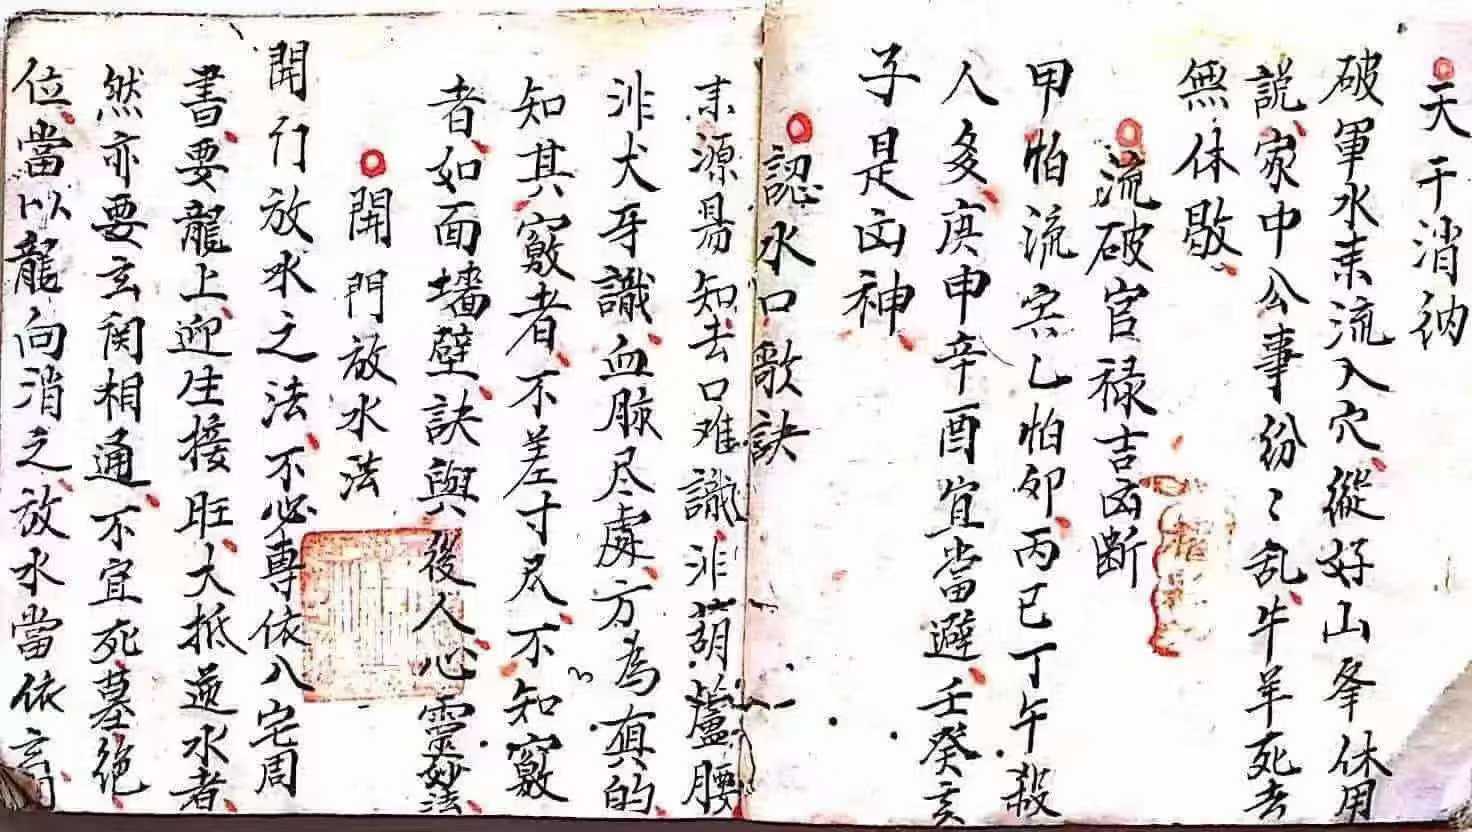 天干消納
破軍水来流入穴縱好山峯休用
説家中公事纷〻乱牛羊死去
無休歇
流破官禄吉凶断
甲怕流寅乙怕卯丙巳丁午殺
人多庚申辛酉宜當避壬癸亥
子是凶神
認水口歌訣
来源易知去口难識非葫蘆腰
非犬牙識血脉尽處方為真的
知其竅者不差寸尺不知竅
者如面墻壁訣與後人心靈妙法
開門放水法
開门放水之法不必專依八宅周
書要龍上迎生接旺大抵逆水者
然亦要玄関相通不宜死墓絶
位當以龍向消之放水當依玄関